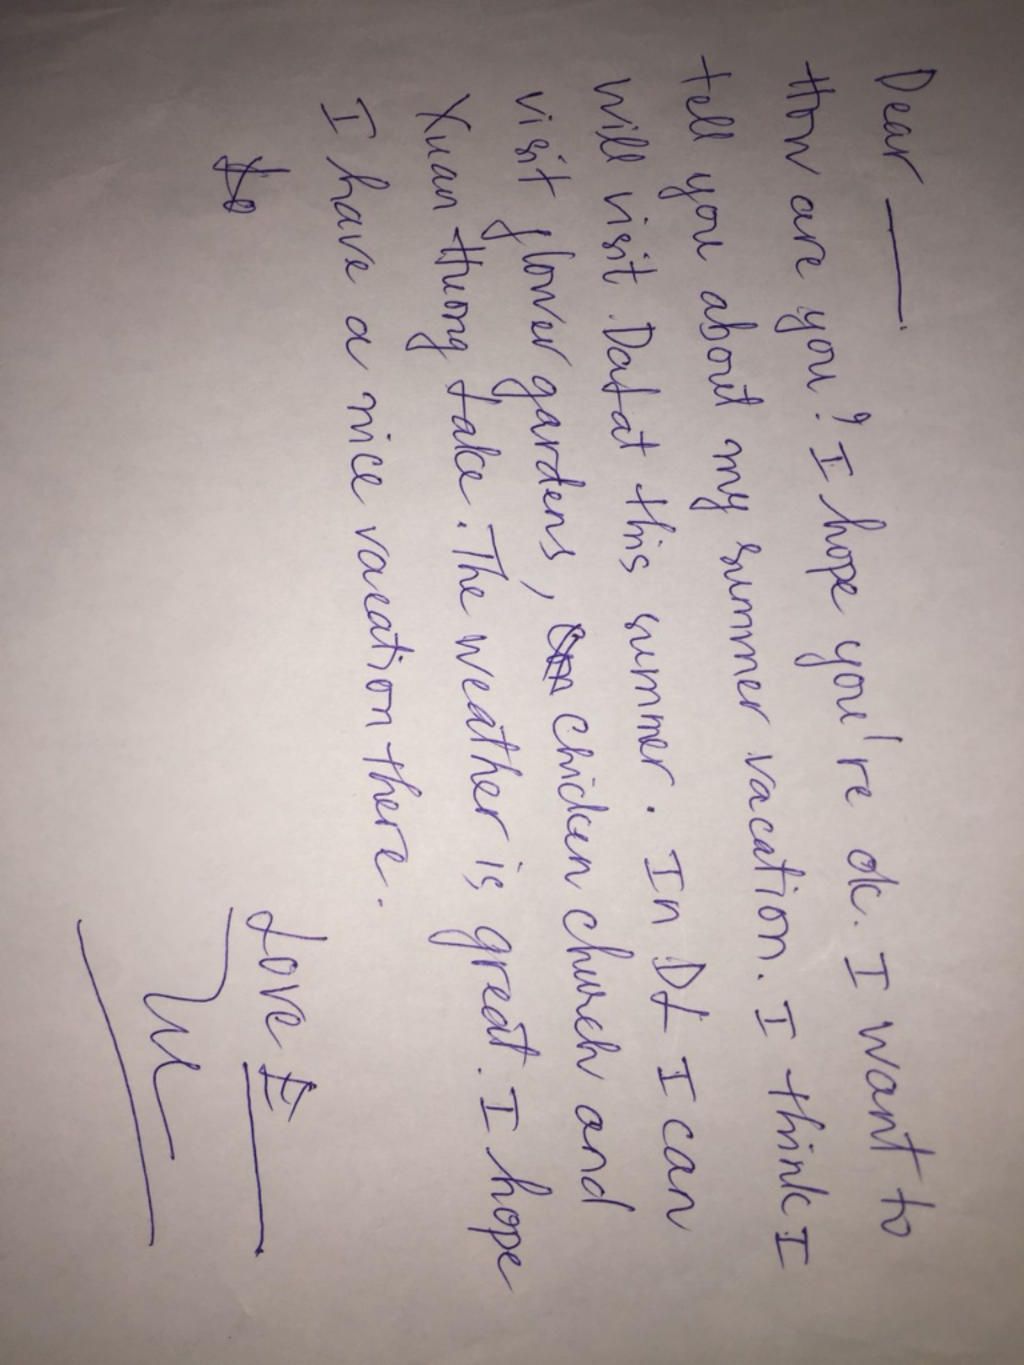 Dear ____.
How are you? I hope you're ok. I want to
tell you about my summer vacation. I think I
will visit Dalat this summer. In DL I can
visit flower gardens, chicken church and
Xuan Huong Lake. The weather is great. I hope
I have a nice vacation there.
Love